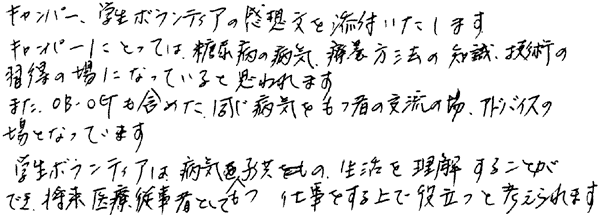 キャンパー、学生ボランティアの感想文を添付いたします
キャンパーにとっては、糖尿病の病気、療養方法の知識、技術の
習得の場になっていると思われます
また、OB・OGも含めた、同じ病気をもつ者の交流の場、アドバイスの
場となっています
学生ボランティアは、病気を子供をもの、生活を理解することが
でき、将来医療従事者としてもつ 仕事をする上で役立つと考えられます